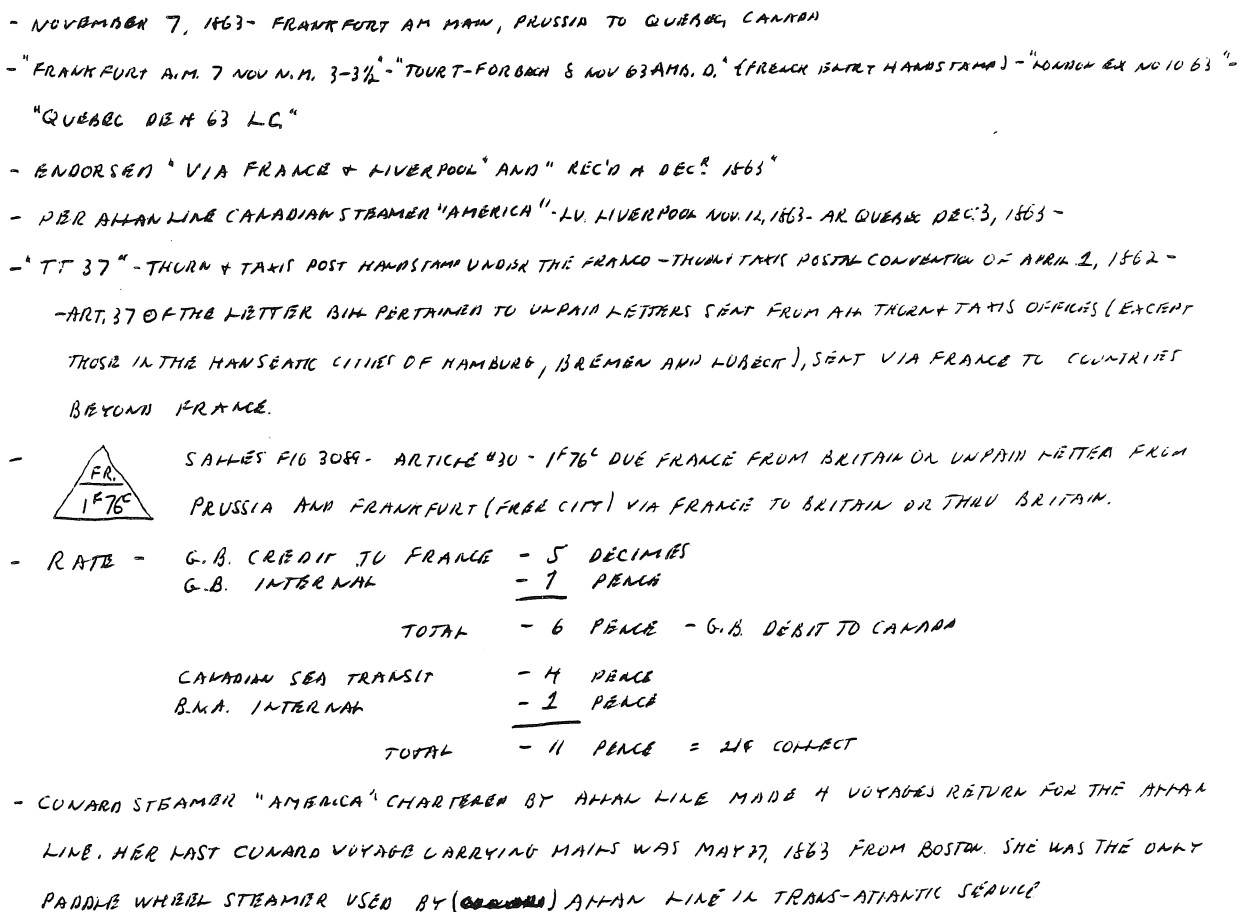 - NOVEMBER 7, 1863- FRANKFURT AM MAIN, PRUSSIA TO QUEBEC, CANADA
- "FRANKFURT A.M. 7 NOV N.M. 3-3½" - "TOUR T-FORBACH 8 NOV 63 AMB. D." (FRENCH ENTRY HANDSTAMP) - "LONDON EX NO 10 63" -
"QUEBEC DE 4 63 LC"
- ENDORSED "VIA FRANCE & LIVERPOOL" AND "REC'D 4 DECR 1863"
- PER ALLAN LINE CANADIAN STEAMER "AMERICA" - LV. LIVERPOOL NOV. 12, 1863 - AR QUEBEC DEC. 3, 1863 -
- "TT 37" - THURN & TAXIS POST HANDSTAMP UNDER THE FRANCO-THURN & TAXIS POSTAL CONVENTION OF APRIL 1, 1862 -
- ART. 37 OF THE LETTER BILL PERTAINED TO UNPAID LETTERS SENT FROM ALL THURN & TAXIS OFFICES (EXCEPT
THOSE IN THE HANSEATIC CITIES OF HAMBURG, BREMEN AND LUBECK), SENT VIA FRANCE TO COUNTRIES
BEYOND FRANCE.
- FR. 1F76C SALLES FIG 3089 - ARTICLE #30 - 1F76C DUE FRANCE FROM BRITAIN ON UNPAID LETTER FROM
PRUSSIA AND FRANKFURT (FREE CITY) VIA FRANCE TO BRITAIN OR THRU BRITAIN.
- RATE - G.B. CREDIT TO FRANCE - 5 DECIMES
G.B. INTERNAL - 1 PENCE
TOTAL - 6 PENCE - G.B. DEBIT TO CANADA
CANADIAN SEA TRANSIT - 4 PENCE
B.N.A. INTERNAL - 1 PENCE
TOTAL - 11 PENCE = COLLECT
- CUNARD STEAMER "AMERICA" CHARTERED BY ALLAN LINE MADE 4 VOYAGES RETURN FOR THE ALLAN
LINE. HER LAST CUNARD VOYAGE CARRYING MAILS WAS MAY 27, 1863 FROM BOSTON. SHE WAS THE ONLY
PADDLE WHEEL STEAMER USED BY ALLAN LINE IN TRANS-ATLANTIC SERVICE